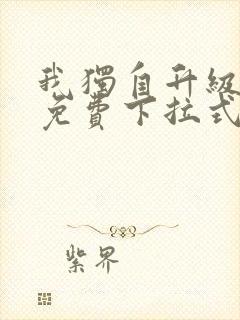 我獨自升級
免費下拉式
紫界